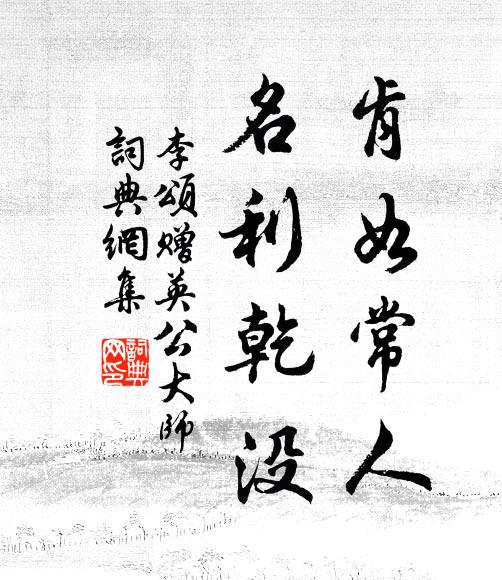 肯如常人
名利乾没
李頌赠英公大师
詞典網集
詞典
网印